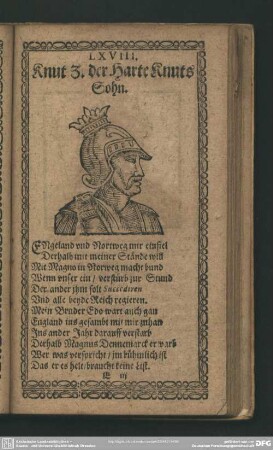 LXVIII.
Knut 3. der Harte Knuts
Sohn.
ENgeland vnd Norweg mir einfiel
Derhalb mit meiner Stände will
Mit Magno in Norweg macht bund
Wenn vnser ein / verstürb zur Stund
Der ander ihm solt Succediren
Vnd alle beyde Reich regieren.
Mein Bruder Edo wart auch gan
England ins gesambt mit mir
Ins ander Jahr darauff verstarb
Derhalb Magnus Dennemarck erwarb
Wer was verspricht / im rühmlich ist
Das er es helt / braucht keine List.
E iij